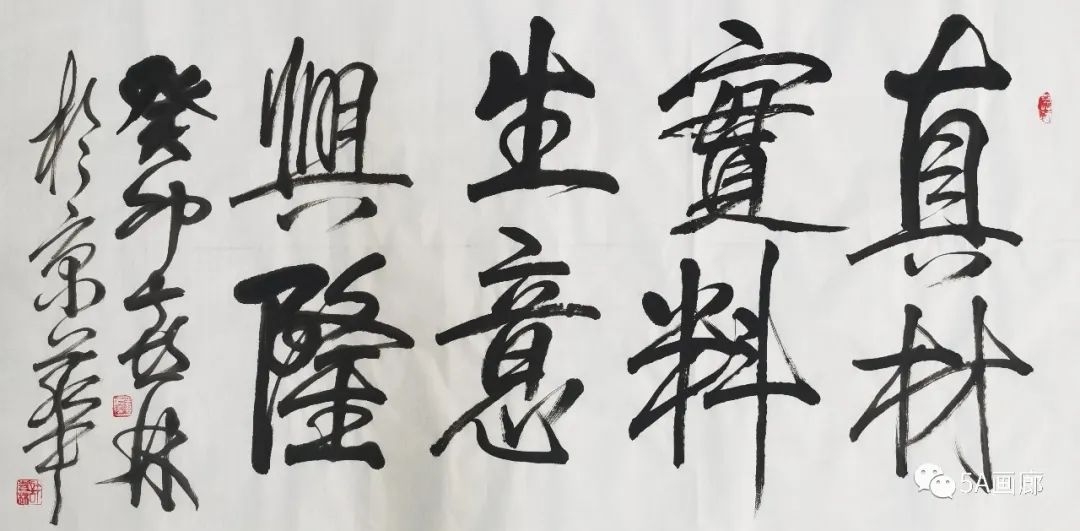 真材
實料
生意
興隆
癸卯喜林
於京華
5A画廊